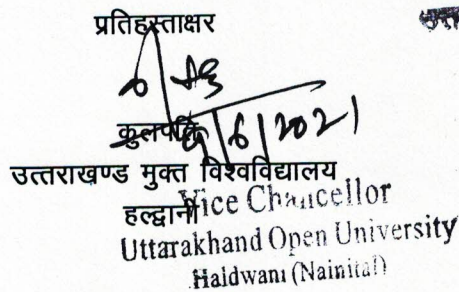 प्रतिहस्ताक्षर
कुलपति
6/2021
उत्तराखण्ड मुक्त विश्वविद्यालय
हल्द्वानी
Vice Chancellor
Uttarakhand Open University
Haldwani (Nainital)